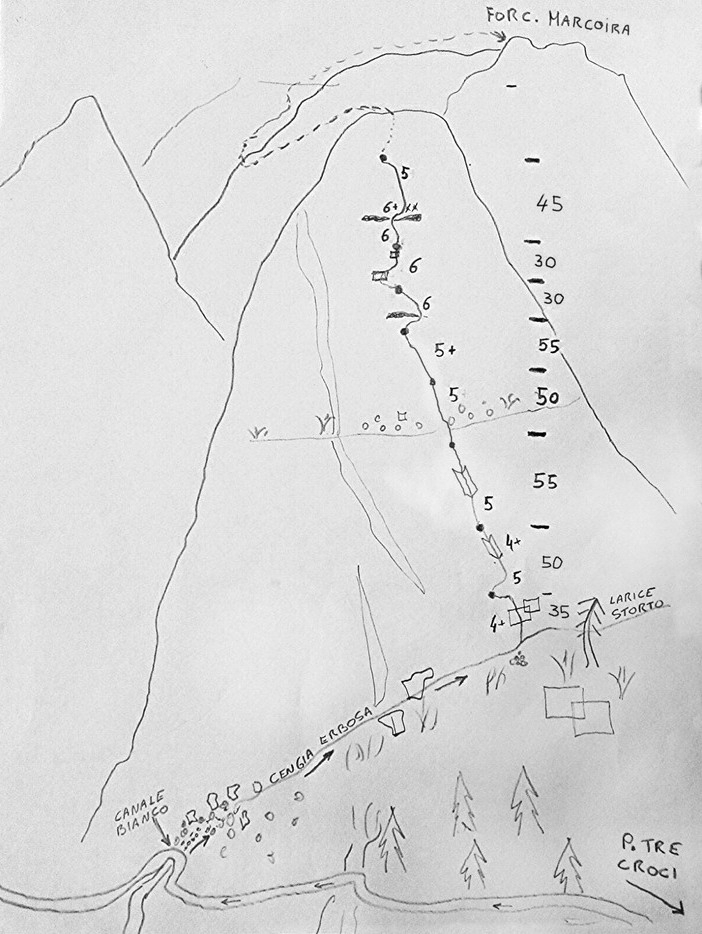 FORC. MARCOIRA
5
6+ xx
45
6
6
30
6
30
5+
55
5
50
55
5
4+
50
5
4+
35
LARICE
STORTO
CENGIA ERBOSA
CANALE
BIANCO
P. TRE
CROCI